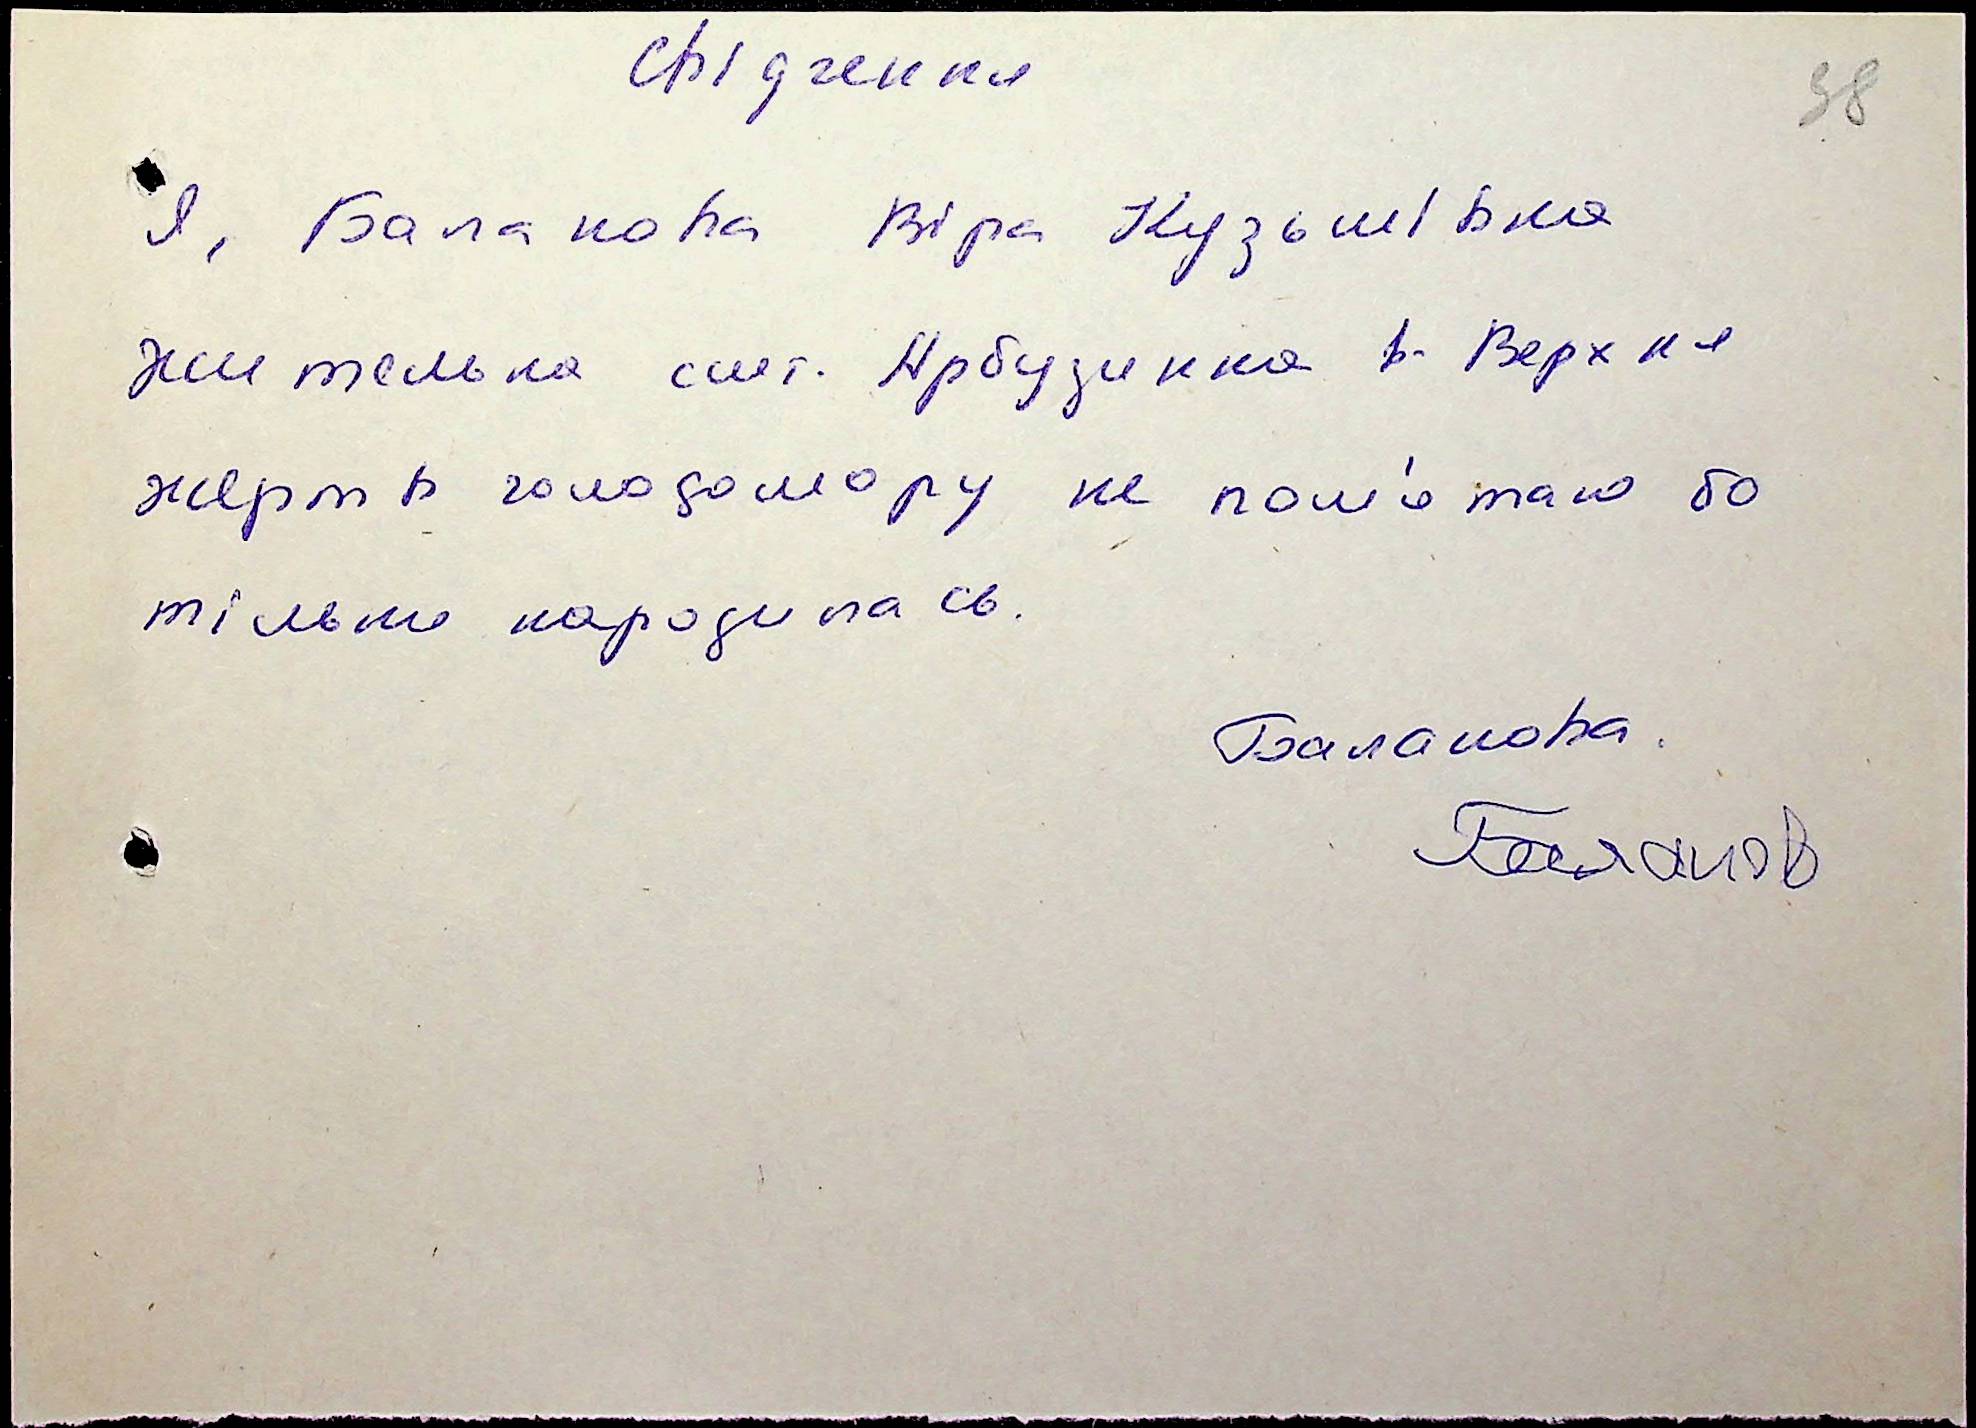 Свідчення
98
Я, Баланова Віра Кузьмівна
жителька смт. Арбузинка в. Верхня
жертв голодомору не пом'ятаю бо
тільки народилась.
Баланова.
Баланов